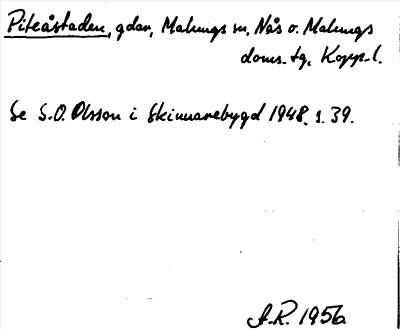 Piteåstaden, gdar, Malungs sn, Nås o. Malungs
doms. tg, Kopp. l.
Se S-O. Olsson i Skinnarebygd 1948, s. 39.
A.R. 1956